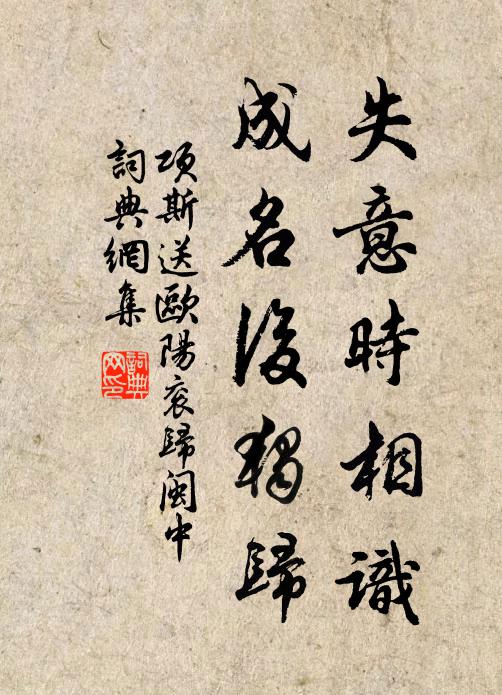 失意時相識
成名後獨歸
項斯送歐陽衮歸閩中
詞典網集
詞典
网印